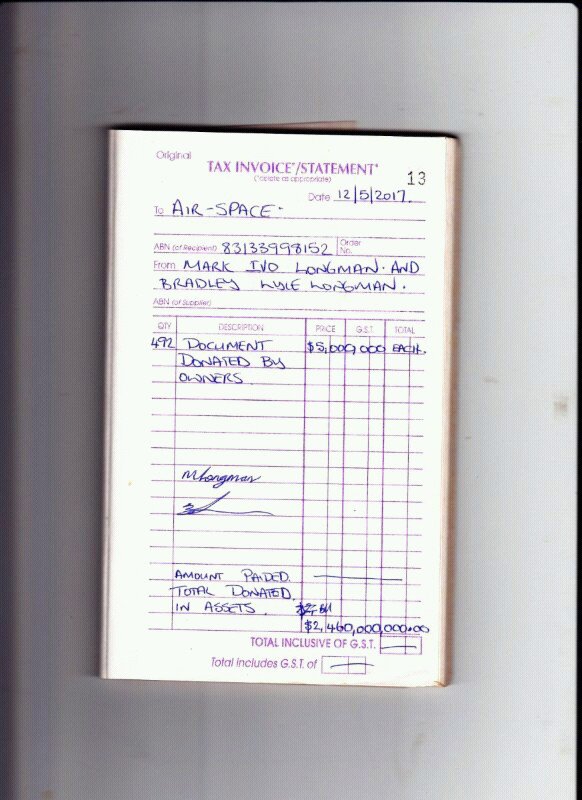 Original
TAX INVOICE*/STATEMENT*
(*delete as appropriate)
13
Date 12/5/2017.
To AIR-SPACE.
ABN (of Recipient) 83133998152 Order No.
From MARK IVO LONGMAN. AND
BRADLEY LYLE LONGMAN.
ABN (of Supplier)
QTY DESCRIPTION PRICE G.S.T. TOTAL
492 DOCUMENT $5,000,000 EACH.
DONATED BY
OWNERS
MLongman
AMOUNT PAIDED.
TOTAL DONATED.
IN ASSETS.
$2,460,000,000.00
TOTAL INCLUSIVE OF G.S.T.
Total includes G.S.T. of